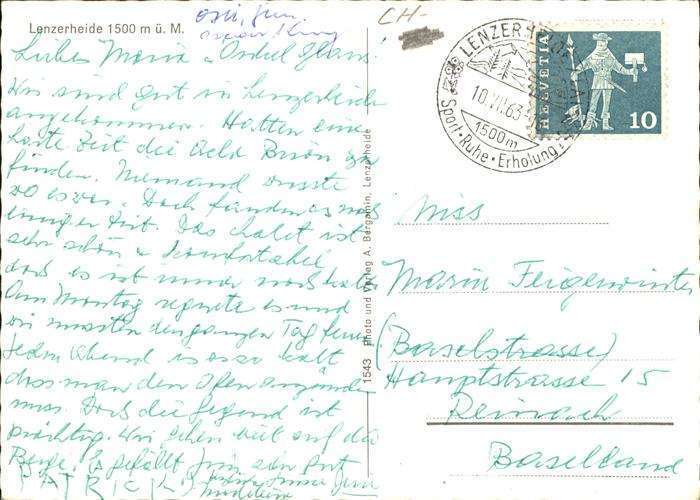 Lenzerheide 1500 m ü. M.
CH-
Liebe Maria u. Onkel Hans.
Wir sind gut in Lenzerheide
angekommen. Hatten eine
harte Zeit die Acla Brüön zu
finden. Niemand wusste
wo es war. Doch fanden es nach
einiger Zeit. Das chalet ist
sehr schön & komfortabel
doch es ist immer noch kalt.
Am Montag regnete es und
wir mussten den ganzen Tag feuern
Jeden Abend ist es so kalt
dass man den Ofen anzünden
muss. Doch die Gegend ist
prächtig. Wir gehen viel auf die
Berge. Es gefällt Jim sehr gut
PATRICK
1543 Photo und Verlag A. Bergamin, Lenzerheide
LENZERHEIDE
10.VII.63
1500m
Sport·Ruhe·Erholung
HELVETIA
10
Miss
Maria Feigenwinter
(Baselstrasse)
Hauptstrasse 15
Reinach
Baselland